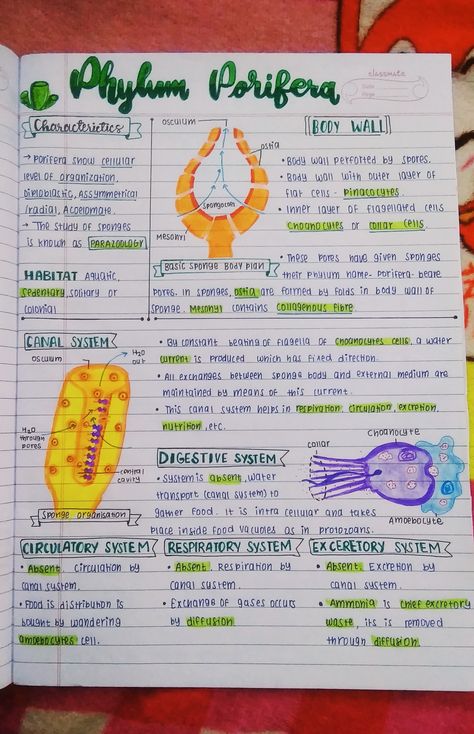 Phylum Porifera
classmate
Date
Page
Characterictics
→ Porifera show cellular
level of organization,
Diploblastic, Assymmetrical
/radial, Acoelomate.
→ The study of sponges
is known as PARAZOOLOGY
HABITAT Aquatic,
sedentary, solitary or
colonial
osculum
ostia
spongocoel
Mesohyl
Basic Sponge Body Plan
BODY WALL
• Body wall perforted by spores.
• Body wall with outer layer of
flat cells - pinacocytes.
• Inner layer of flagellated cells
choanocytes or collar cells.
• These pores have given sponges
their phylum name- porifera- beare
pores. In sponges, ostia are formed by folds in body wall of
sponge. Mesohyl contains collagenous fibre
CANAL SYSTEM
osculum
H2O
out
H2O
through
pores
central
cavity
Sponge organisation
• By constant beating of flagella of choanocytes cells, a water
current is produced which has fixed direction.
• All exchanges between sponge body and external medium are
maintained by means of this current.
• This canal system helps in respiration, circulation, excretion,
nutrition, etc.
DIGESTIVE SYSTEM
• System is absent, water
transport (canal system) to
gather food. It is intra cellular and takes
place inside food vacuoles as in protozoans.
Choanocyte
collar
Amoebocyte
CIRCULATORY SYSTEM
• Absent, circulation by
canal system.
• Food is distribution is
bought by wandering
amoebocytes cell.
RESPIRATORY SYSTEM
• Absent. Respiration by
canal system.
• Exchange of gases occurs
by diffusion
EXCERETORY SYSTEM
• Absent. Excretion by
canal system.
• Ammonia is chief excretory
waste, its is removed
through diffusion.